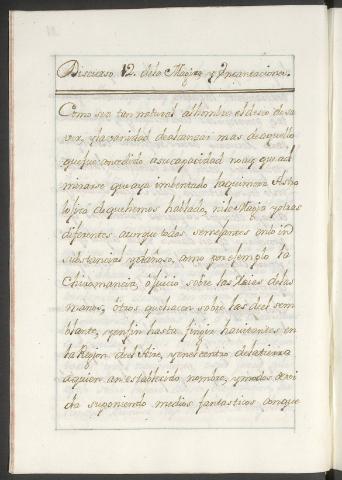 Discurso 12. dela Magia y Incantaciones.
Como sea tan natural alhombre el deseo de sa
ver, y la vanidad de alcanzar mas de aquello
que fue concedido asu capacidad no ay que ad
mirarse que aya imbentado la quimera Astro
losica de que hemos hablado, ni la Magia y otras
diferentes aunque todas semejantes en lo in
substancial y dañoso, como por exemplo la
Chiromancia, ò juicio sobre las Raias delas
manos, òtros que hacen sobre las del sem
blante, y en fin hasta fingir havitantes en
la Region del Aire, y en el centro dela tierra
a quien an establecido nombre, y modos de vi
da suponiendo medios fantasticos con que